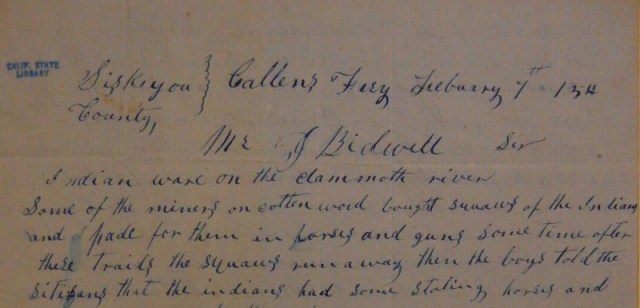 CALIF. STATE
LIBRARY
Siskeyou } Callens Fery Febuary 7th 154
County,
Mr J Bidwell Sir
Indian ware on the clammoth river
Some of the miners on cotten wood bought squaws of the Indians
and pade for them in horses and guns some time after
these traids the squaws run away then the boys told the
sitisans that the indians had some stoling horses and